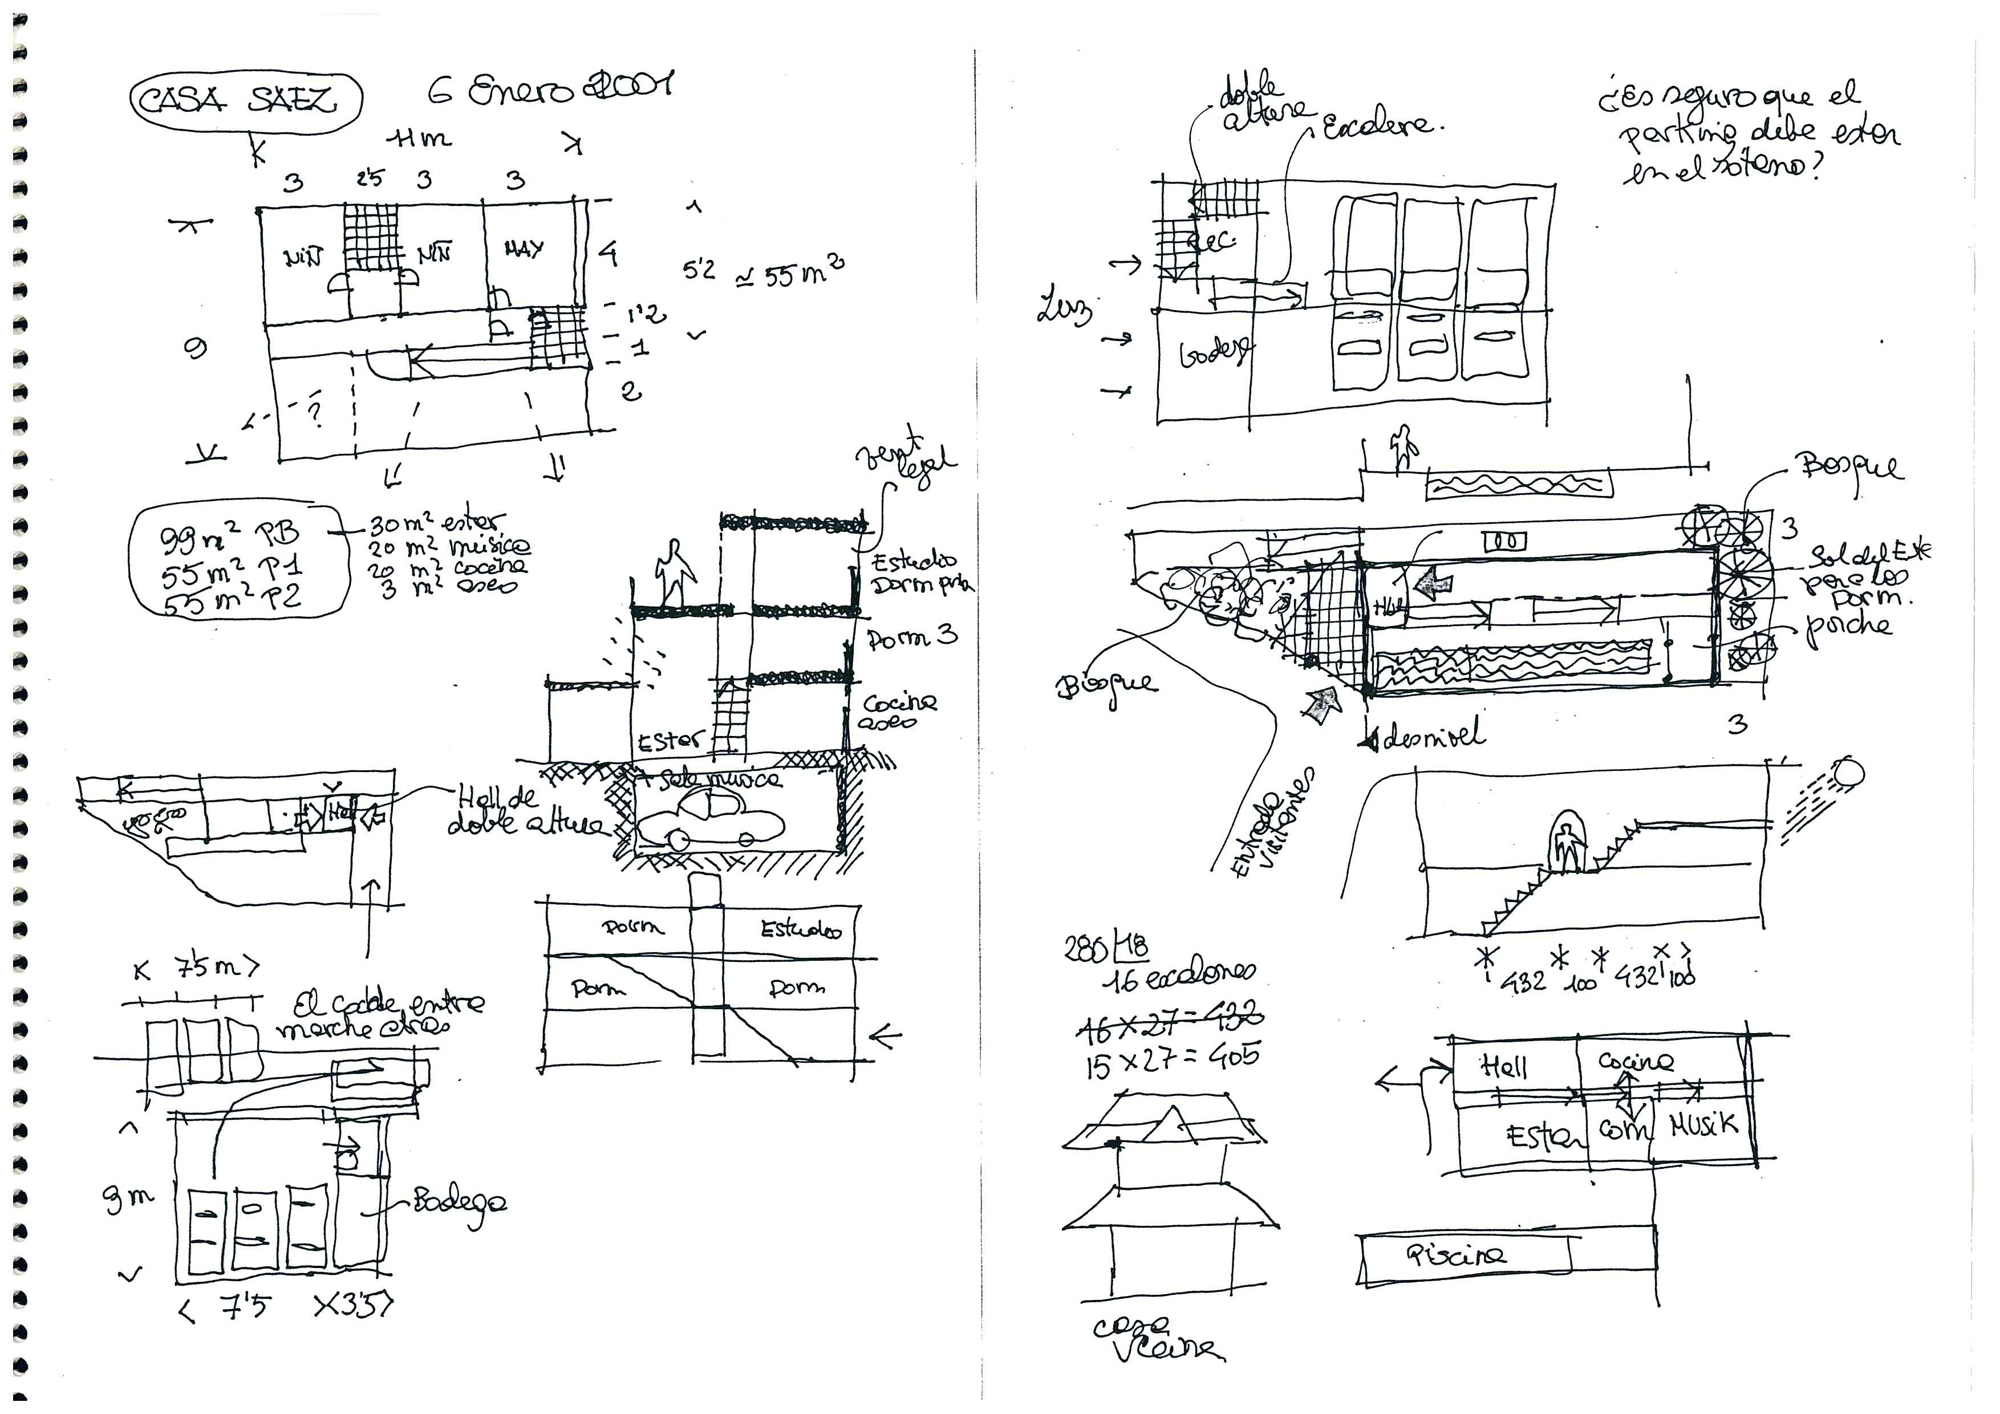 CASA SAEZ
6 Enero 2001
11 m
3
2'5
3
3
NIÑ
NIÑ
MAY
4
1'2
1
2
5'2
≃ 55 m²
9
?
99 m² PB
55 m² P1
55 m² P2
30 m² estar
20 m² música
20 m² cocina
3 m² aseo
vent
legal
Estudio
Dorm ppta
Dorm 3
Cocina
aseo
Estar
+ Sala musica
Hall
Hall de
doble altura
Dorm
Estudio
Dorm
Dorm
< 7'5 m >
El coche entra
marcha atras
9 m
Bodega
< 7'5 ×3'5>
doble
altura
Escalera.
¿Es seguro que el
parking debe estar
en el sótano?
REC.
Luz
bodega
Bosque
3
Sol del Este
para los
Dorm.
porche
Hall
Bosque
desnivel
3
Entrada
visitantes
432 100 432 100
280 | 18
16 escalones
16 × 27 = 432
15 × 27 = 405
Hall
Cocina
Estar
Com
MUSIK
Piscina
casa
vecina